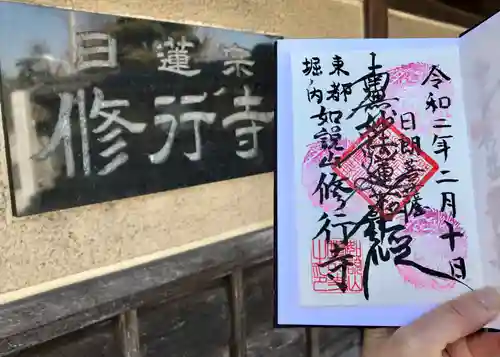 日蓮宗
修行寺
令和二年二月十日
日朗菩薩
南無妙法蓮華経
東都
堀ノ内
如説山修行寺